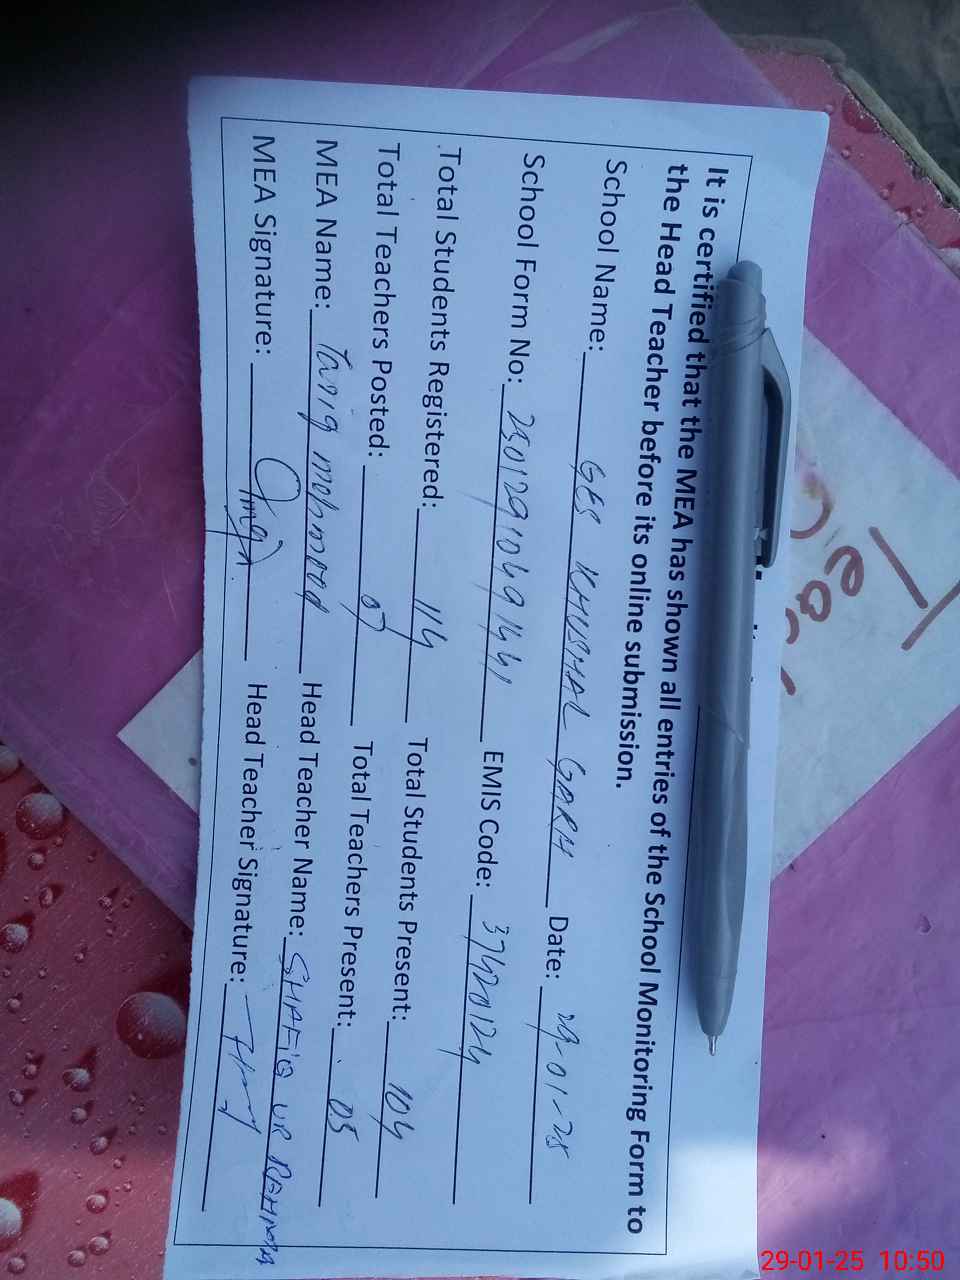 It is certified that the MEA has shown all entries of the School Monitoring Form to
the Head Teacher before its online submission.
School Name: GES KHUSHAL GARH Date: 29-01-25
School Form No: 25012910491441 EMIS Code: 37420124
Total Students Registered: 114 Total Students Present: 104
Total Teachers Posted: 07 Total Teachers Present: 05
MEA Name: Tariq mehmood Head Teacher Name: SHAFIQ UR REHMAN
MEA Signature: Head Teacher Signature:
29-01-25 10:50